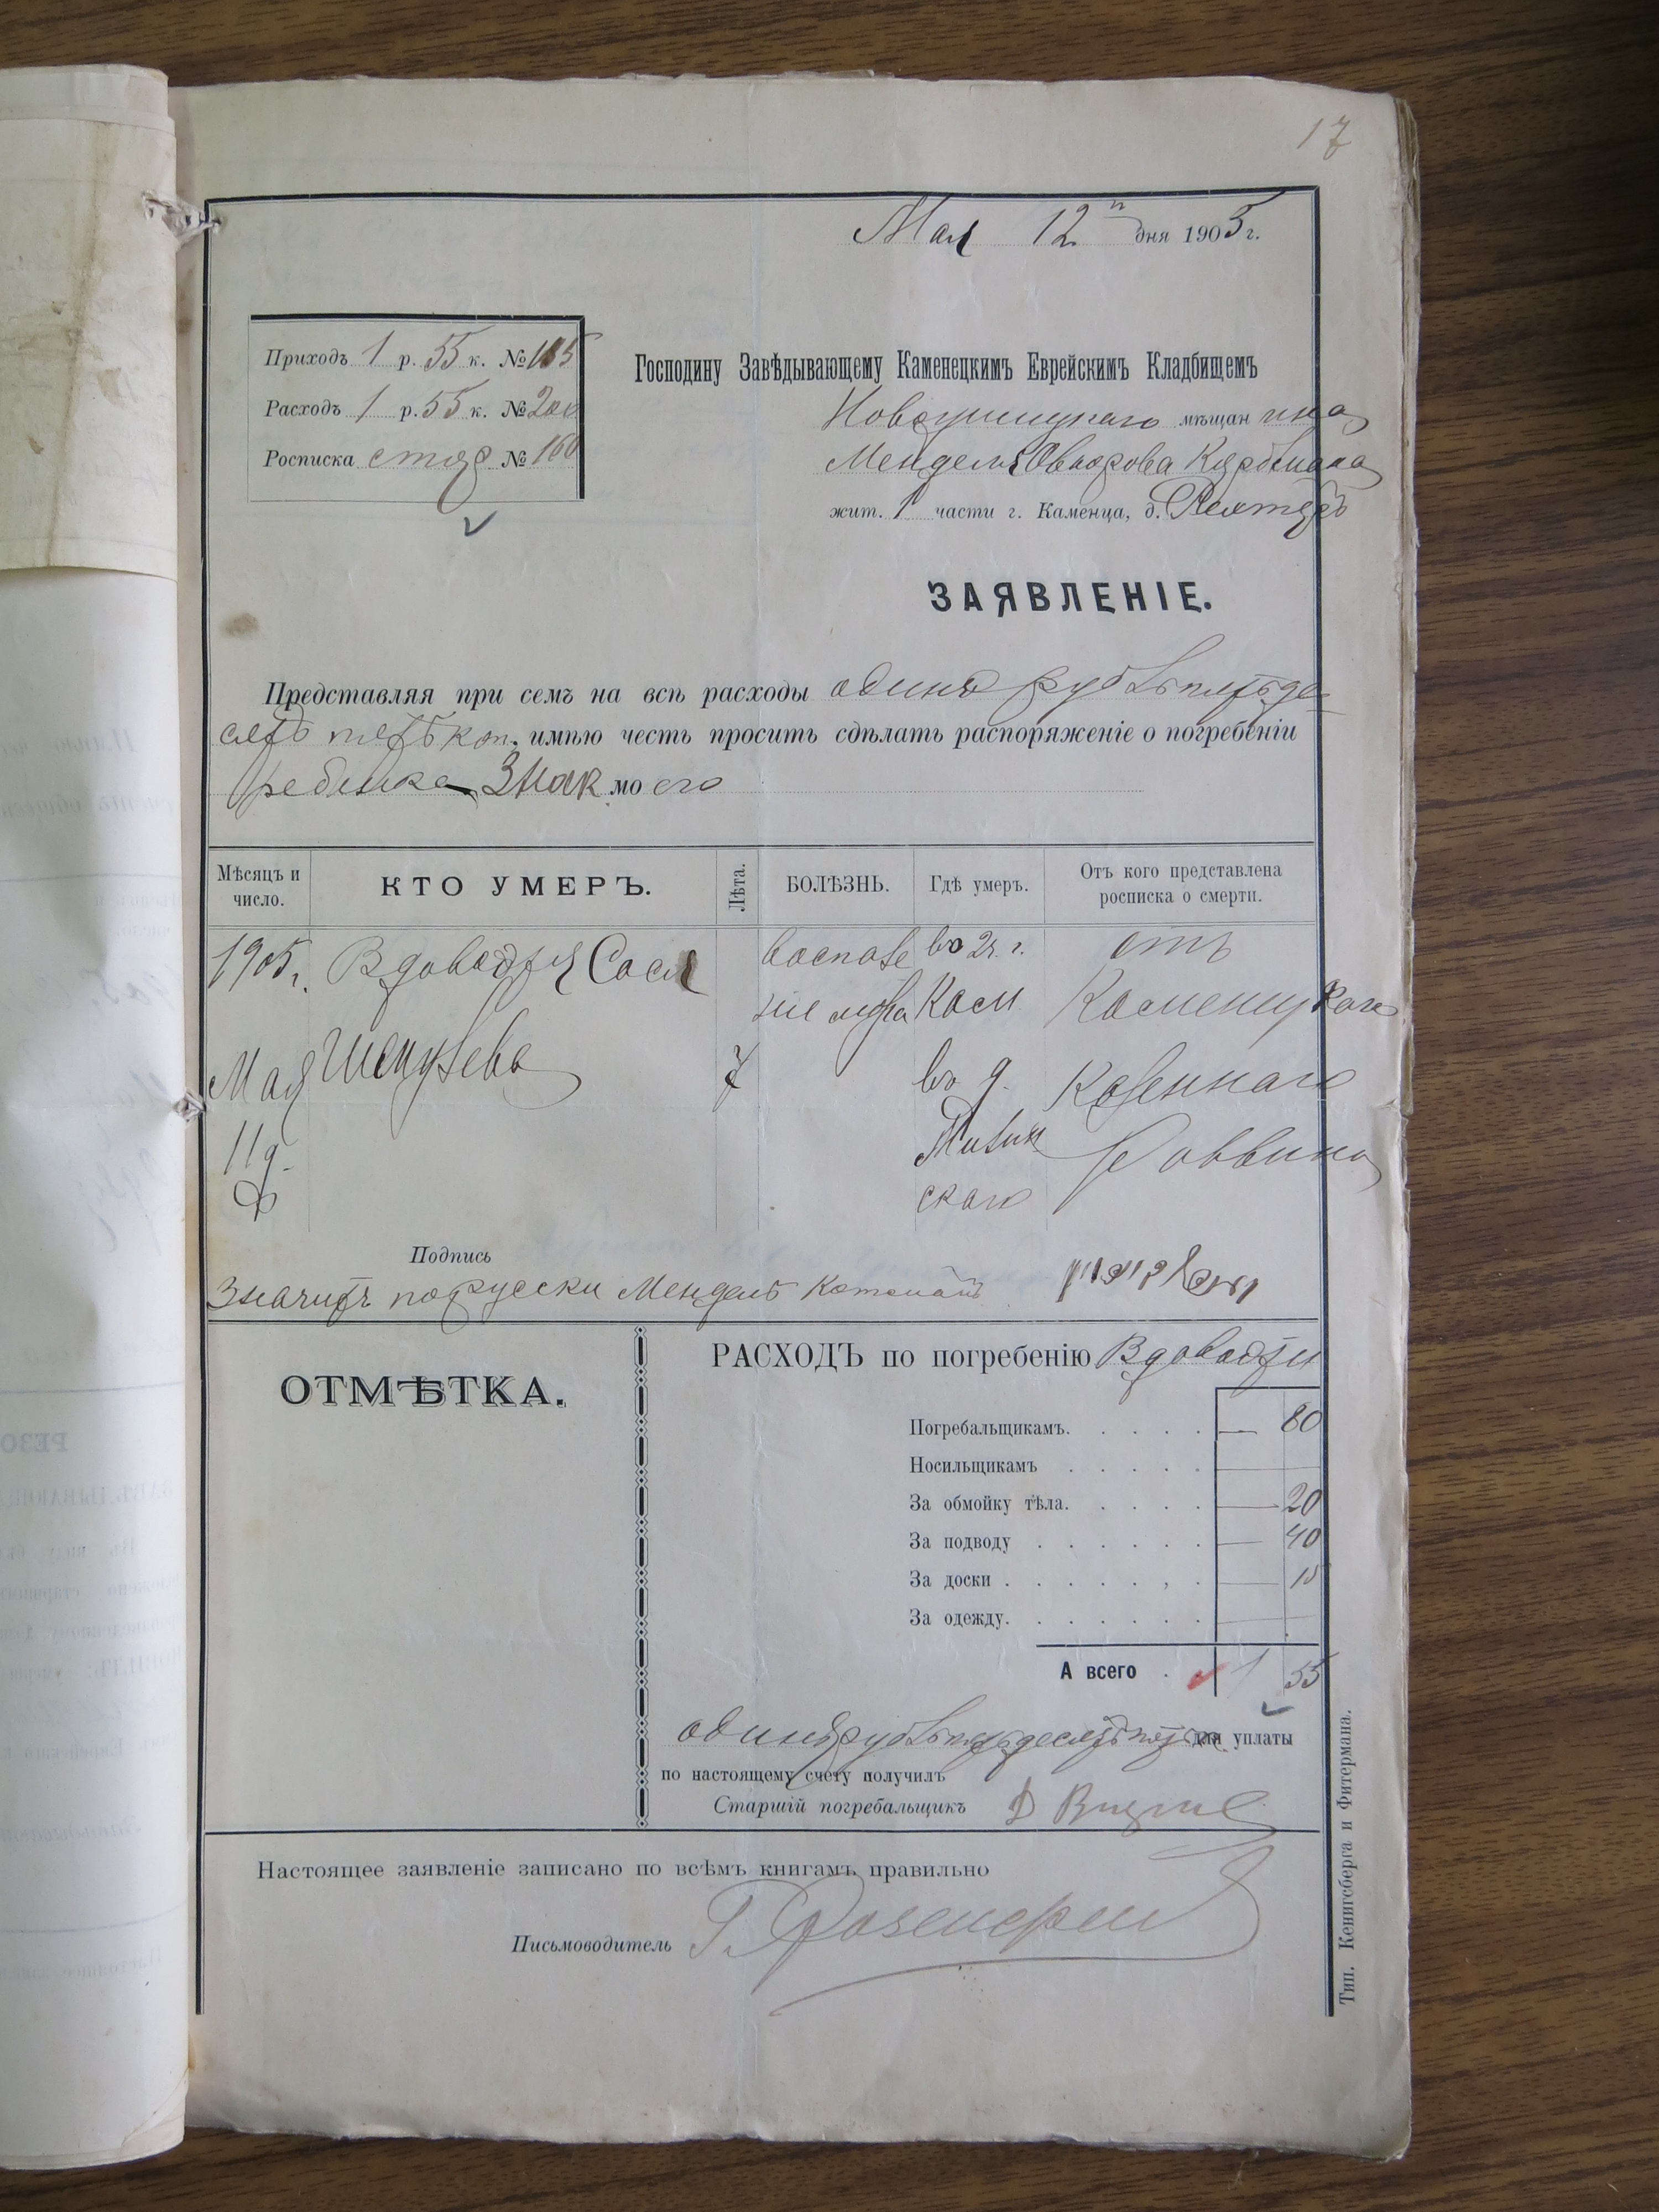 17
Мая 12 дня 1905 г.
Приходъ 1 р. 55 к. № 185
Расходъ 1 р. 55 к. № 200
Росписка № 160
Господину Завѣдывающему Каменецкимъ Еврейскимъ Кладбищемъ
Новоушицкаго мѣщанина
Менделя
жит. 1 части г. Каменца, д. Рехтеръ
ЗАЯВЛЕНІЕ.
Представляя при семъ на всѣ расходы одинъ рубль пятьде-
сятъ пять коп. имѣю честь просить сдѣлать распоряженіе о погребеніи
ребенка знакомого
Мѣсяцъ и число. КТО УМЕРЪ. Лѣта. БОЛѢЗНЬ. Гдѣ умеръ. Отъ кого представлена росписка о смерти.
1905 г. Сося воспале въ г. отъ
ніе Кам Каменецкаго
Мая 7 въ д. Казеннаго
11 д. Раввина
скаго
Подпись
Значитъ по русски Мендель
ОТМѢТКА.
РАСХОДЪ по погребенію
Погребальщикамъ. — 80
Носильщикамъ
За обмойку тѣла. — 20
За подводу — 40
За доски — 15
За одежду.
А всего 1 55
одинъ рубль пятьдесятъ пять для уплаты
по настоящему счету получилъ
Старшій погребальщикъ
Настоящее заявленіе записано по всѣмъ книгамъ правильно
Письмоводитель
Тип. Кенигсберга и Фитермана.